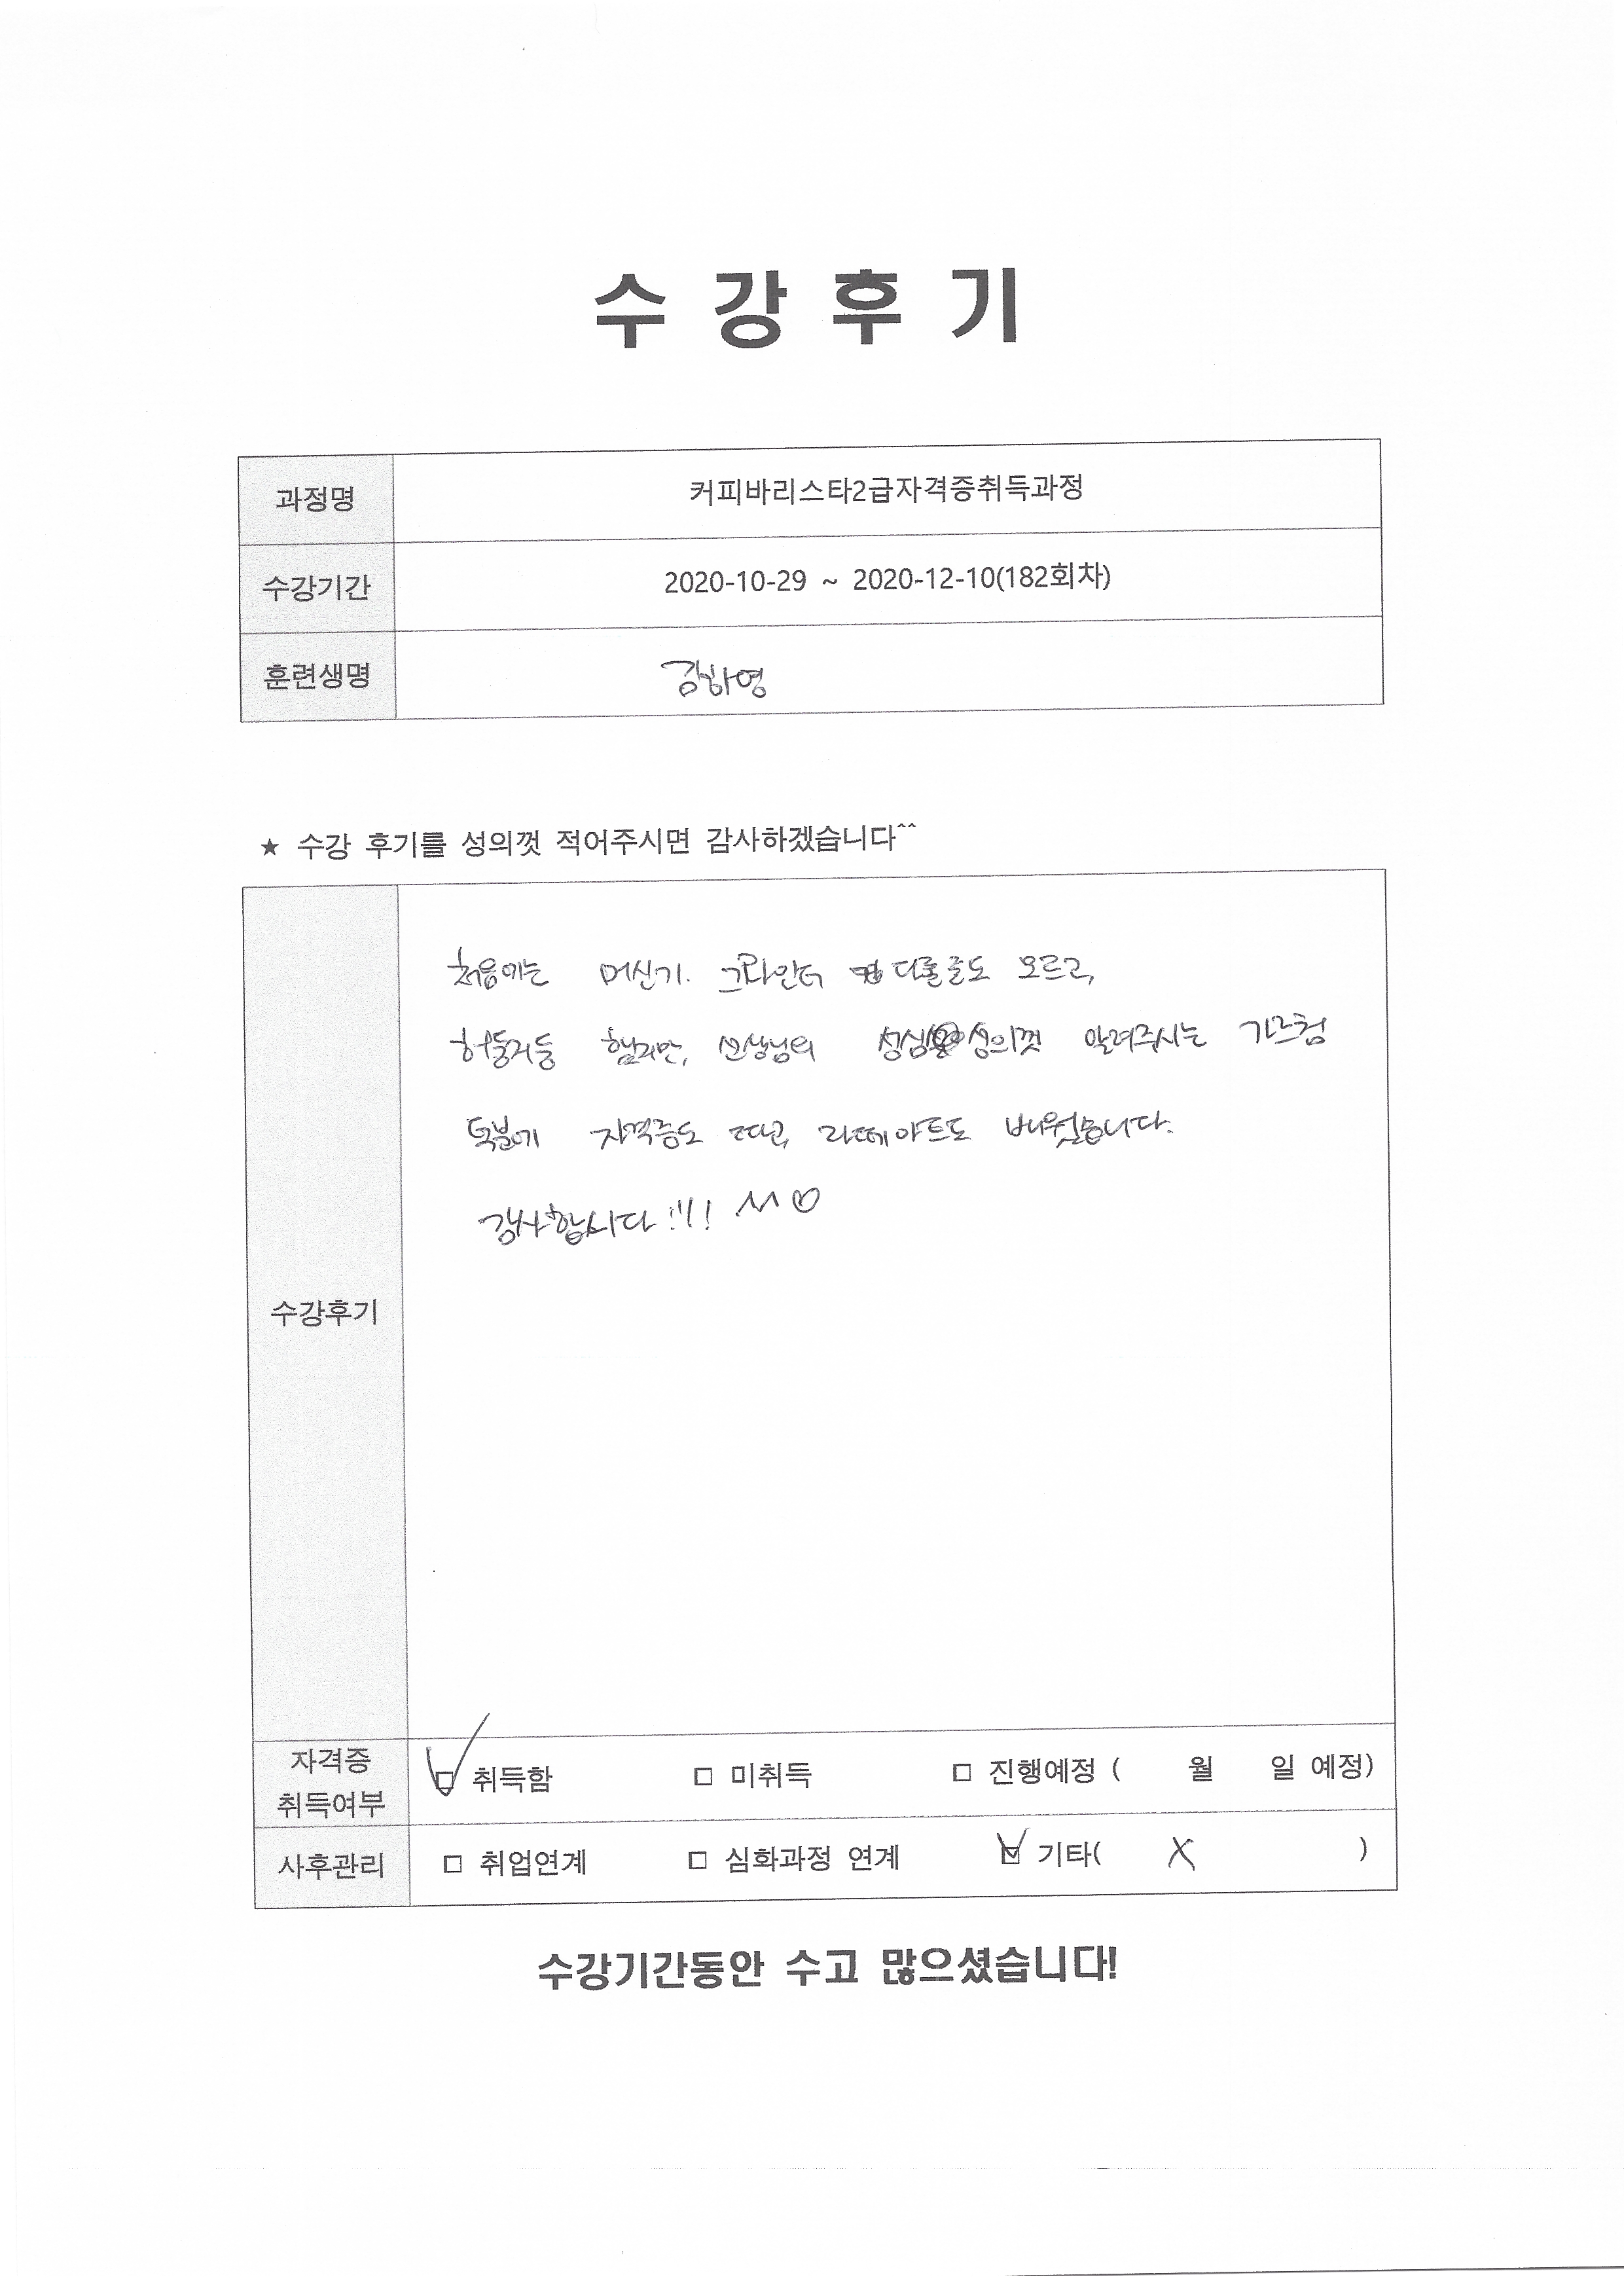 수강후기
과정명 커피바리스타2급자격증취득과정
수강기간 2020-10-29 ~ 2020-12-10(182회차)
훈련생명 김하영
★ 수강 후기를 성의껏 적어주시면 감사하겠습니다^^
처음에는 머신기. 그라인더 다룰줄도 모르고,
허둥지둥 했지만, 선생님의 성심 성의껏 알려주시는 가르침
덕분에 자격증도 따고, 라떼아트도 배웠습니다.
감사합니다!!! ^^♡
수강후기
자격증
취득여부 ☑ 취득함 □ 미취득 □ 진행예정 ( 월 일 예정)
사후관리 □ 취업연계 □ 심화과정 연계 ☑ 기타( X )
수강기간동안 수고 많으셨습니다!